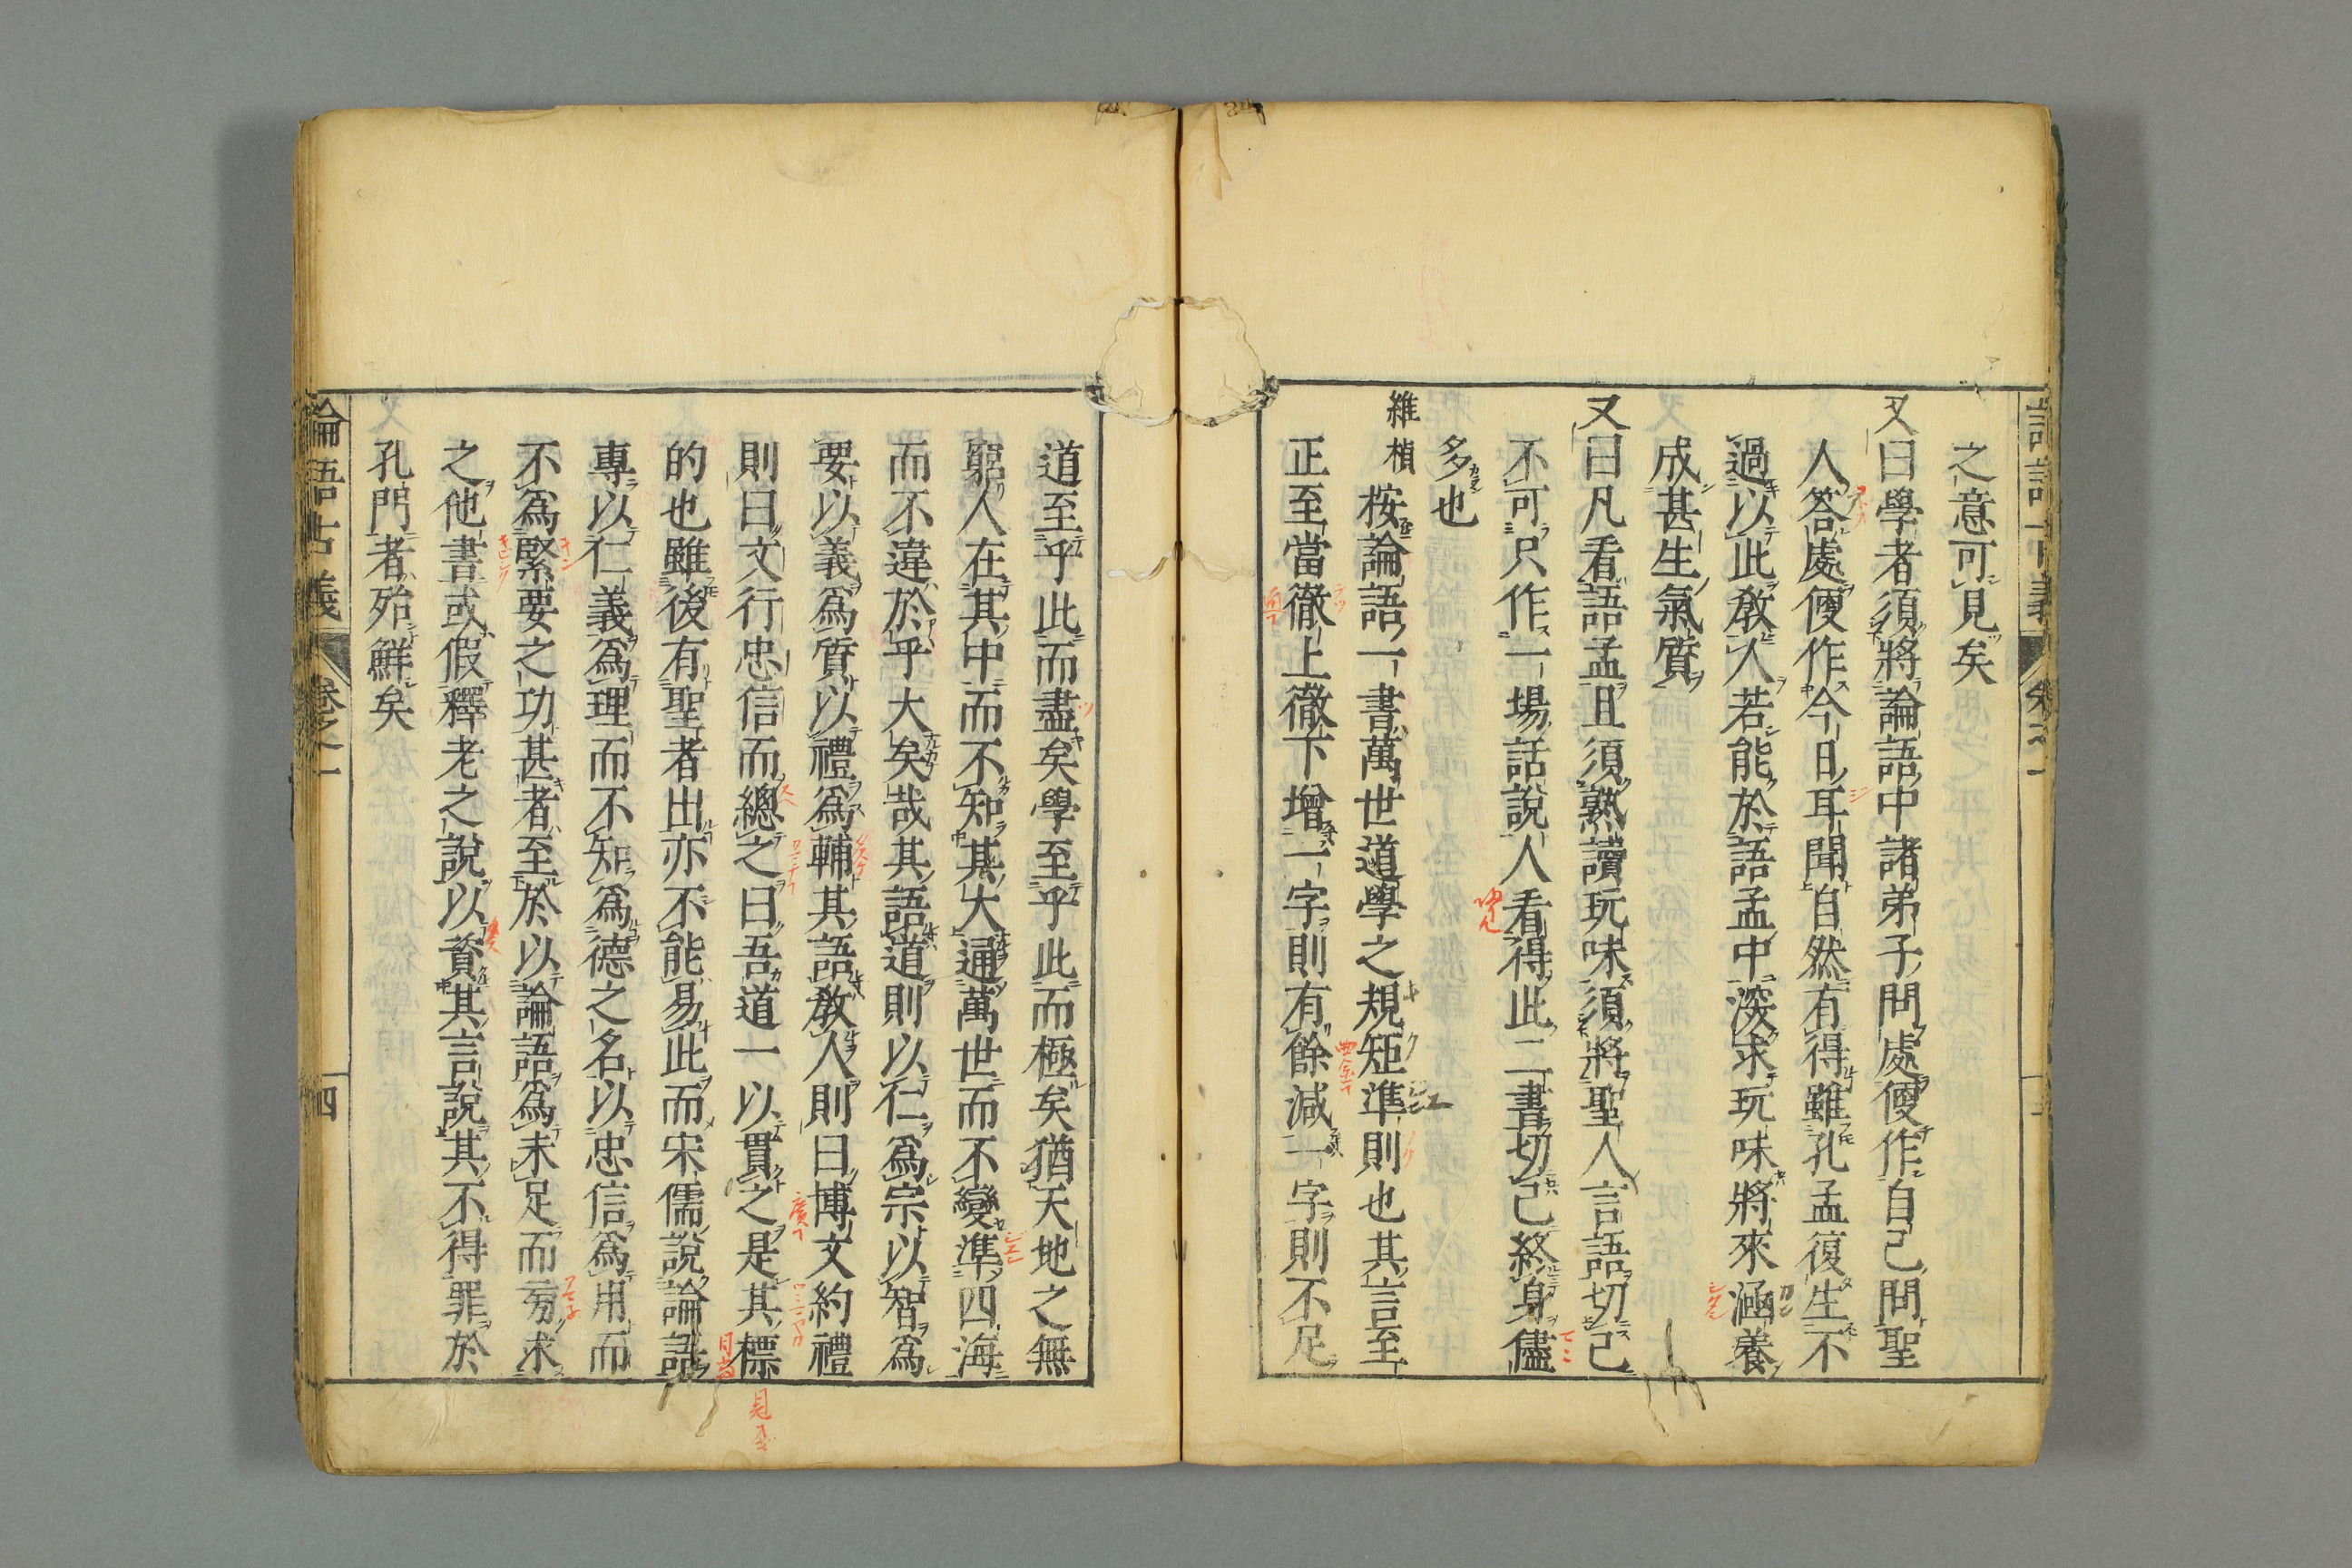 之意可見矣
又曰學者須將論語中諸弟子問處便作自己問聖
人答處便作今日耳聞自然有得雖孔孟復生不
過以此敎人若能於語孟中深求玩味將來涵養
成甚生氣質
又曰凡看語孟且須熟讀玩味須將聖人言語切己
不可只作一場話說人看得此二書切己終身儘
多也
維楨按論語一書萬世道學之規矩準則也其言至
正至當徹上徹下增一字則有餘減一字則不足
道至乎此而盡矣學至乎此而極矣猶天地之無
窮人在其中而不知其大通萬世而不變準四海
而不違於乎大矣哉其語道則以仁爲宗以智爲
要以義爲質以禮爲輔其語敎人則曰博文約禮
則曰文行忠信而總之曰吾道一以貫之是其標
的也雖後有聖者出亦不能易此而宋儒說論語
專以仁義爲理而不知爲德之名以忠信爲用而
不爲緊要之功甚者至於以論語爲未足而旁求
之他書或假釋老之說以資其言說其不得罪於
孔門者殆鮮矣
論語古義 卷之一 四